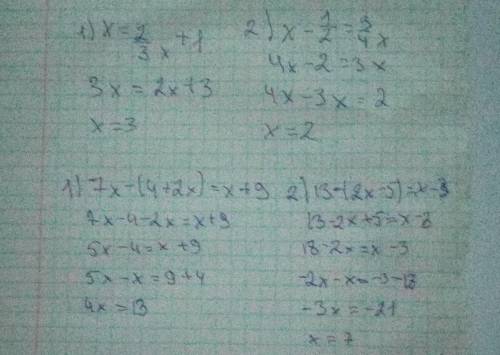 1) x = 2/3 x + 1
3x = 2x + 3
x = 3
2) x - 1/2 = 3/4 x
4x - 2 = 3x
4x - 3x = 2
x = 2
1) 7x - (4 + 2x) = x + 9
7x - 4 - 2x = x + 9
5x - 4 = x + 9
5x - x = 9 + 4
4x = 13
2) 13 - (2x - 5) = x - 3
13 - 2x + 5 = x - 3
18 - 2x = x - 3
-2x - x = -3 - 18
-3x = -21
x = 7